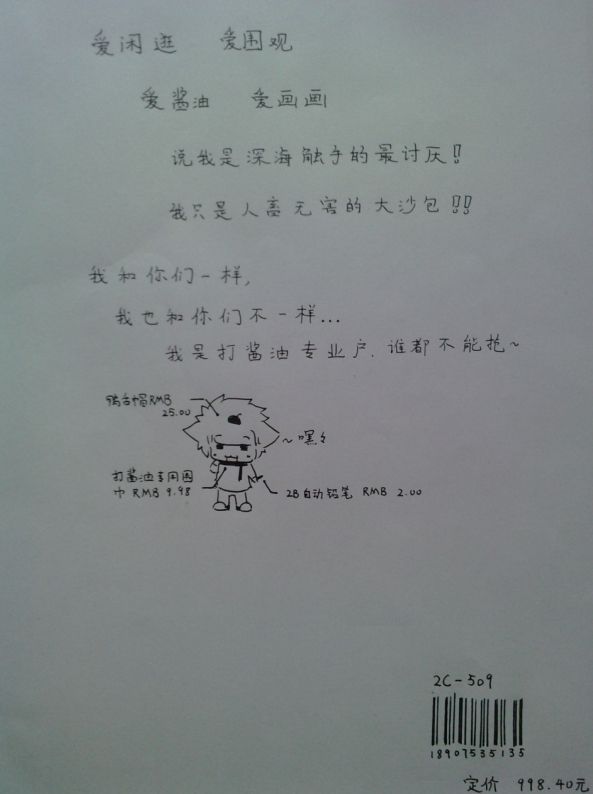 爱闲逛 爱围观
爱酱油 爱画画
说我是深海触手的最讨厌!!
我只是人畜无害的大沙包!!!
我和你们一样,
我也和你们不一样...
我是打酱油专业户.谁都不能抢~
鸭舌帽RMB
25.00
~嘿々
打酱油专用围
巾 RMB 9.98
2B自动铅笔 RMB 2.00
2C-509
18907535135
定价 998.40元